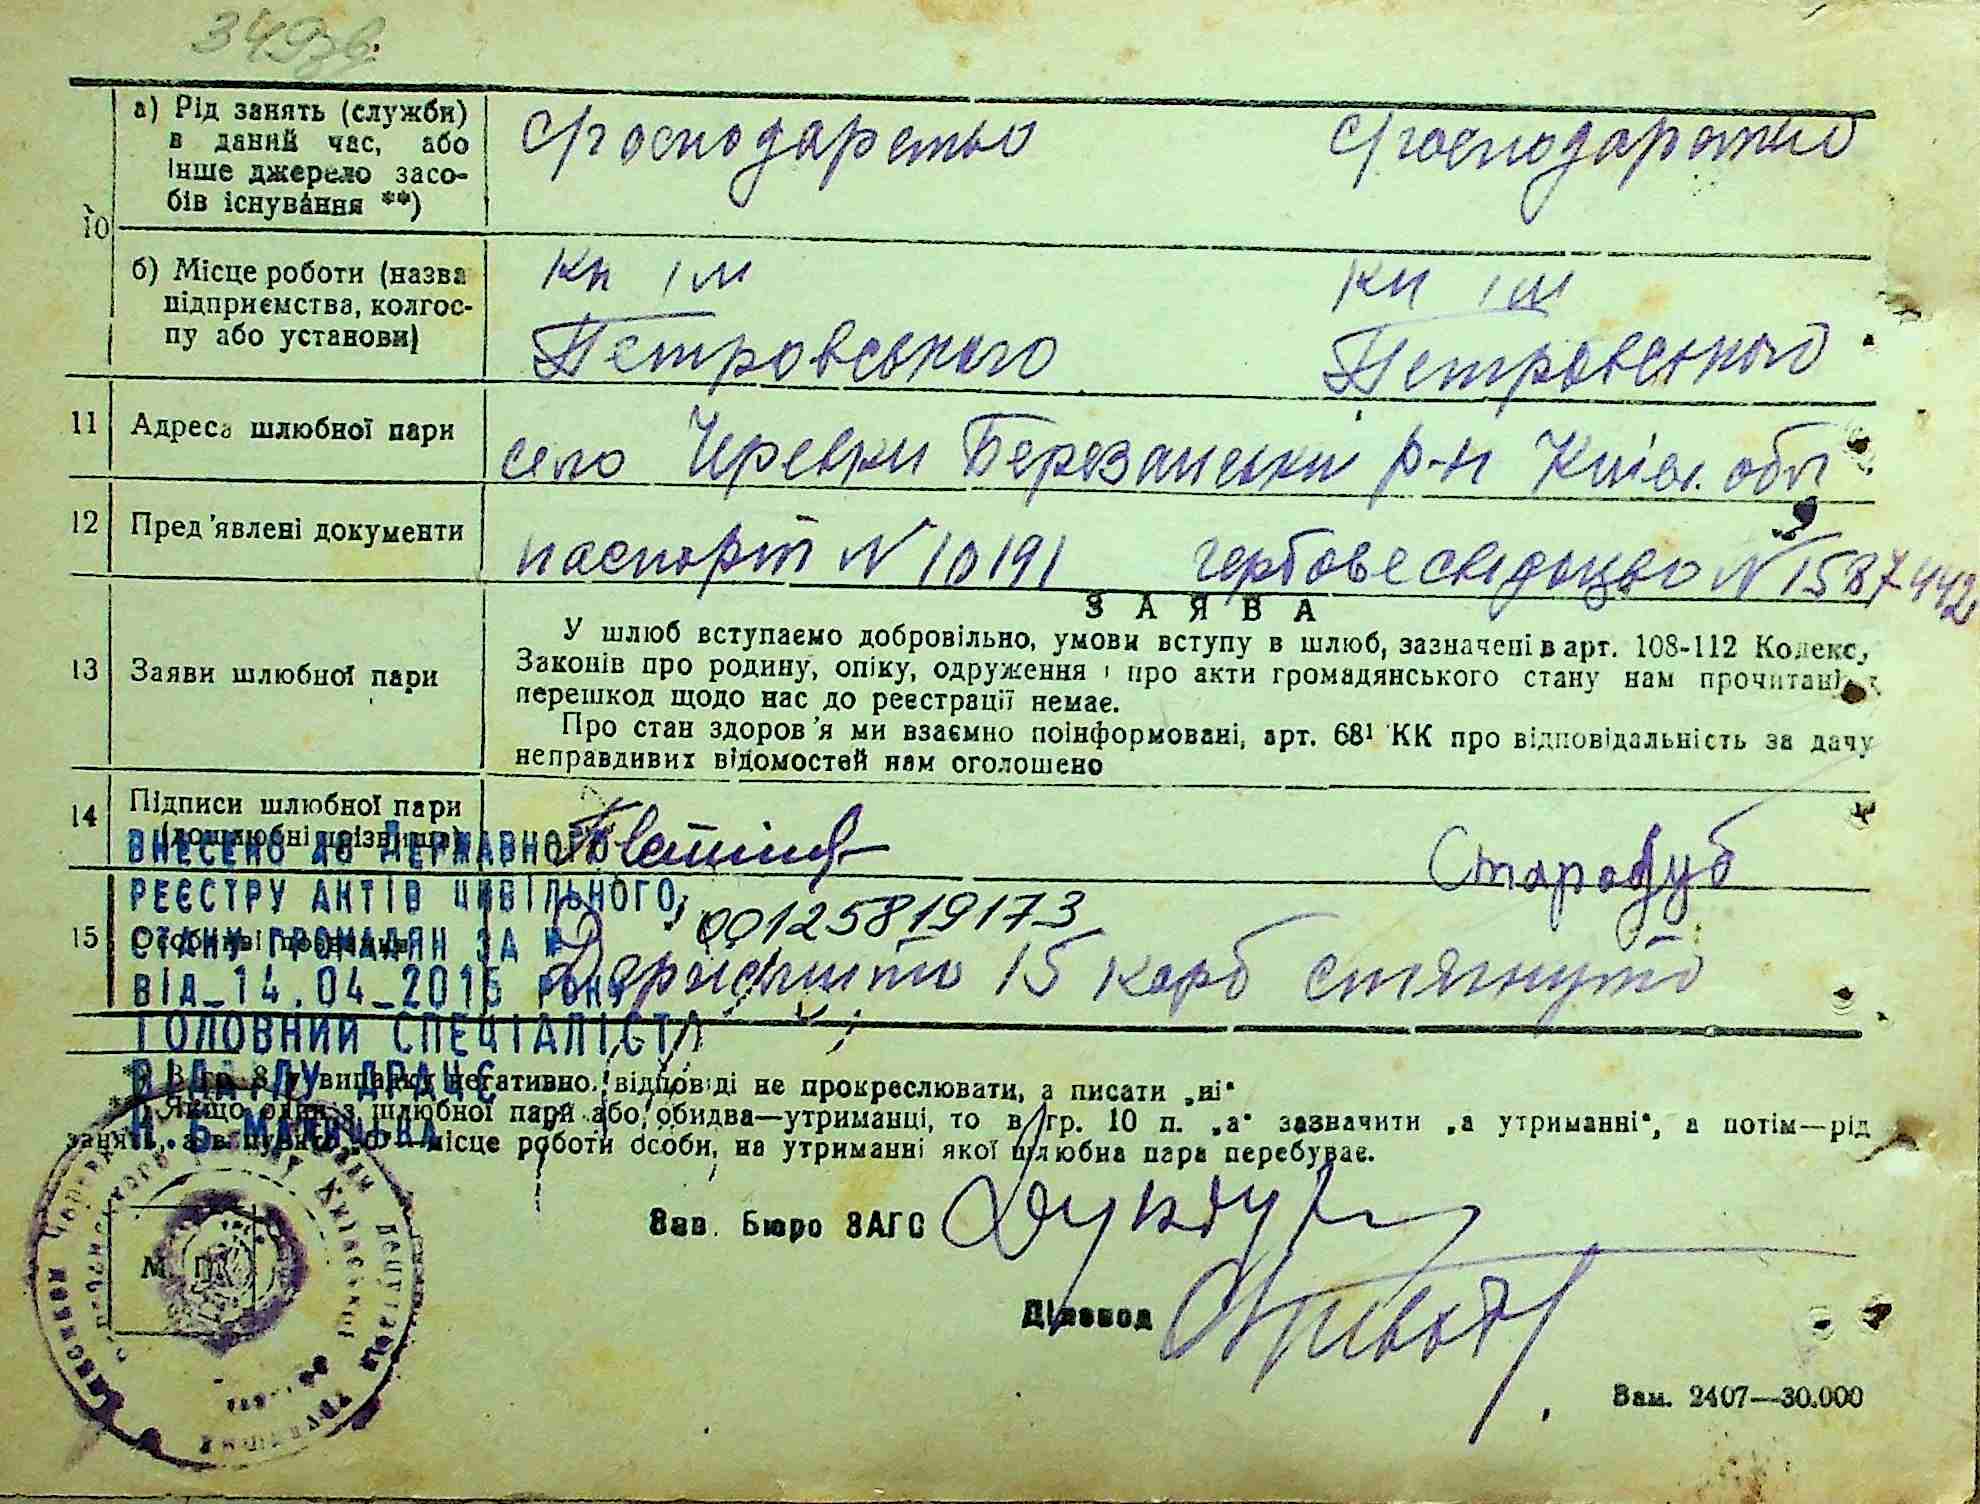 349зв.
а) Рід занять (служби)
в даний час, або
інше джерело засо-
бів існування **)
с/господарство с/господарство
10
б) Місце роботи (назва
підприємства, колгос-
пу або установи)
Кп ім Кп ім
Петровського Петровського
11 Адреса шлюбної пари
село Черевки Березанський р-н Київ. обл
12 Пред'явлені документи
паспорт N 10191 гербове свідоцво N 1587442
ЗАЯВА
13 Заяви шлюбної пари
У шлюб вступаємо добровільно, умови вступу в шлюб, зазначені в арт. 108-112 Кодексу
Законів про родину, опіку, одруження і про акти громадянського стану нам прочитані
перешкод щодо нас до реєстрації немає.
Про стан здоров'я ми взаємно поінформовані, арт. 68¹ КК про відповідальність за дачу
неправдивих відомостей нам оголошено
14 Підписи шлюбної пари
(дошлюбні прізвища)
Стародуб
15
ВНЕСЕНО ДО ДЕРЖАВНОГО
РЕЄСТРУ АКТІВ ЦИВІЛЬНОГО
СТАНУ ГРОМАДЯН ЗА № 00125819173
ВІД_14.04_2015 РОКУ
ГОЛОВНИЙ СПЕЦІАЛІСТ
ВІДДІЛУ ДРАЦС
Держмито 15 карб стягнуто
* В гр. 8 у випадку негативно. відповіді не прокреслювати, а писати „ні“
** Якщо один з шлюбної пари або обидва—утриманці, то в гр. 10 п. „а“ зазначити „а утриманні“, а потім—рід
занять, а в пункті „б“—місце роботи особи, на утриманні якої шлюбна пара перебуває.
Зав. Бюро ЗАГС
М П
Діловод
Зам. 2407—30.000